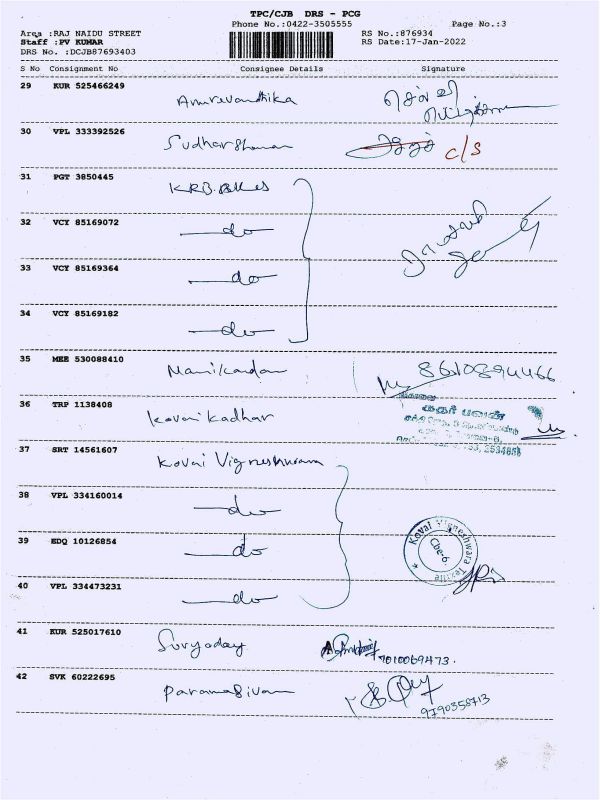 TPC/CJB DRS - PCG
Phone No.:0422-3505555
Page No.:3
Area :RAJ NAIDU STREET
RS No.:876934
Staff :PV KUMAR
RS Date:17-Jan-2022
DRS No. :DCJB87693403
S No Consignment No Consignee Details Signature
29 KUR 525466249
30 VPL 333392526 c/s
31 PGT 3850445 KRB
32 VCY 85169072 do
33 VCY 85169364 do
34 VCY 85169182 do
35 MEE 530088410 Manikandan 8610894466
36 TRP 1138408 Kovai Kadhar
37 SRT 14561607 Kovai Vigneshwara
38 VPL 334160014 do
39 EDQ 10126854 do
Kovai Vigneshwara Textile
Cbe-6
40 VPL 334473231 do
41 KUR 525017610 Suryoday 9010069473
42 SVK 60222695 Paramasivam 9790358713